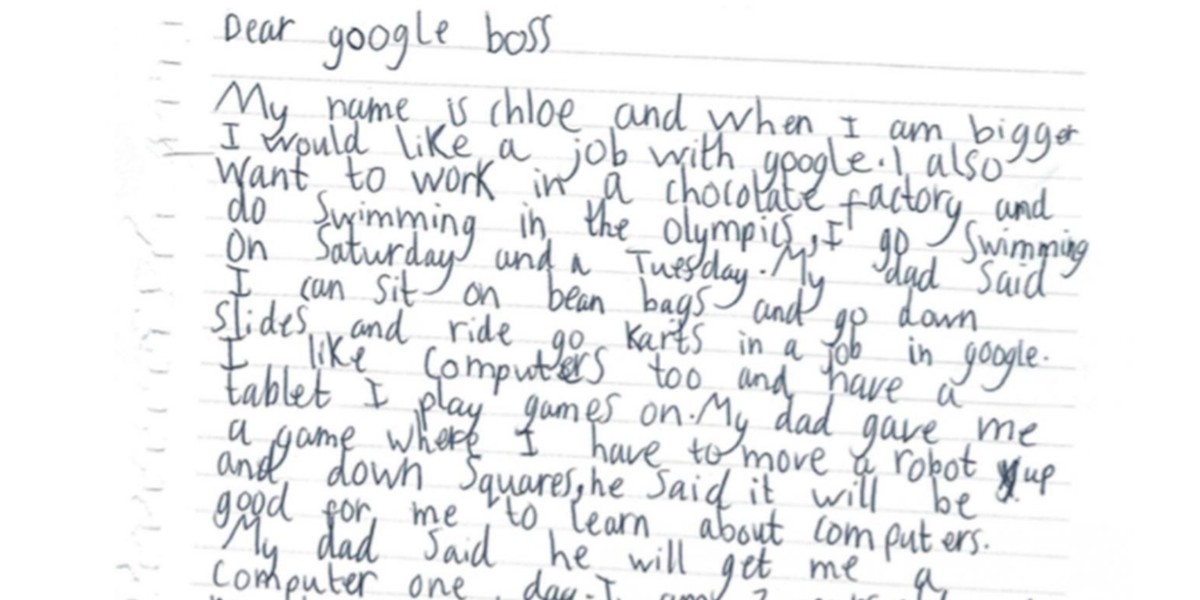 Dear google boss
My name is chloe and when I am bigger
I would like a job with google. I also
want to work in a chocolate factory and
do swimming in the olympics, I go swimming
on Saturday and a Tuesday. My dad said
I can sit on bean bags and go down
slides and ride go karts in a job in google.
I like computers too and have a
tablet I play games on. My dad gave me
a game where I have to move a robot up
and down squares, he said it will be
good for me to learn about computers.
My dad said he will get me a
computer one day. I